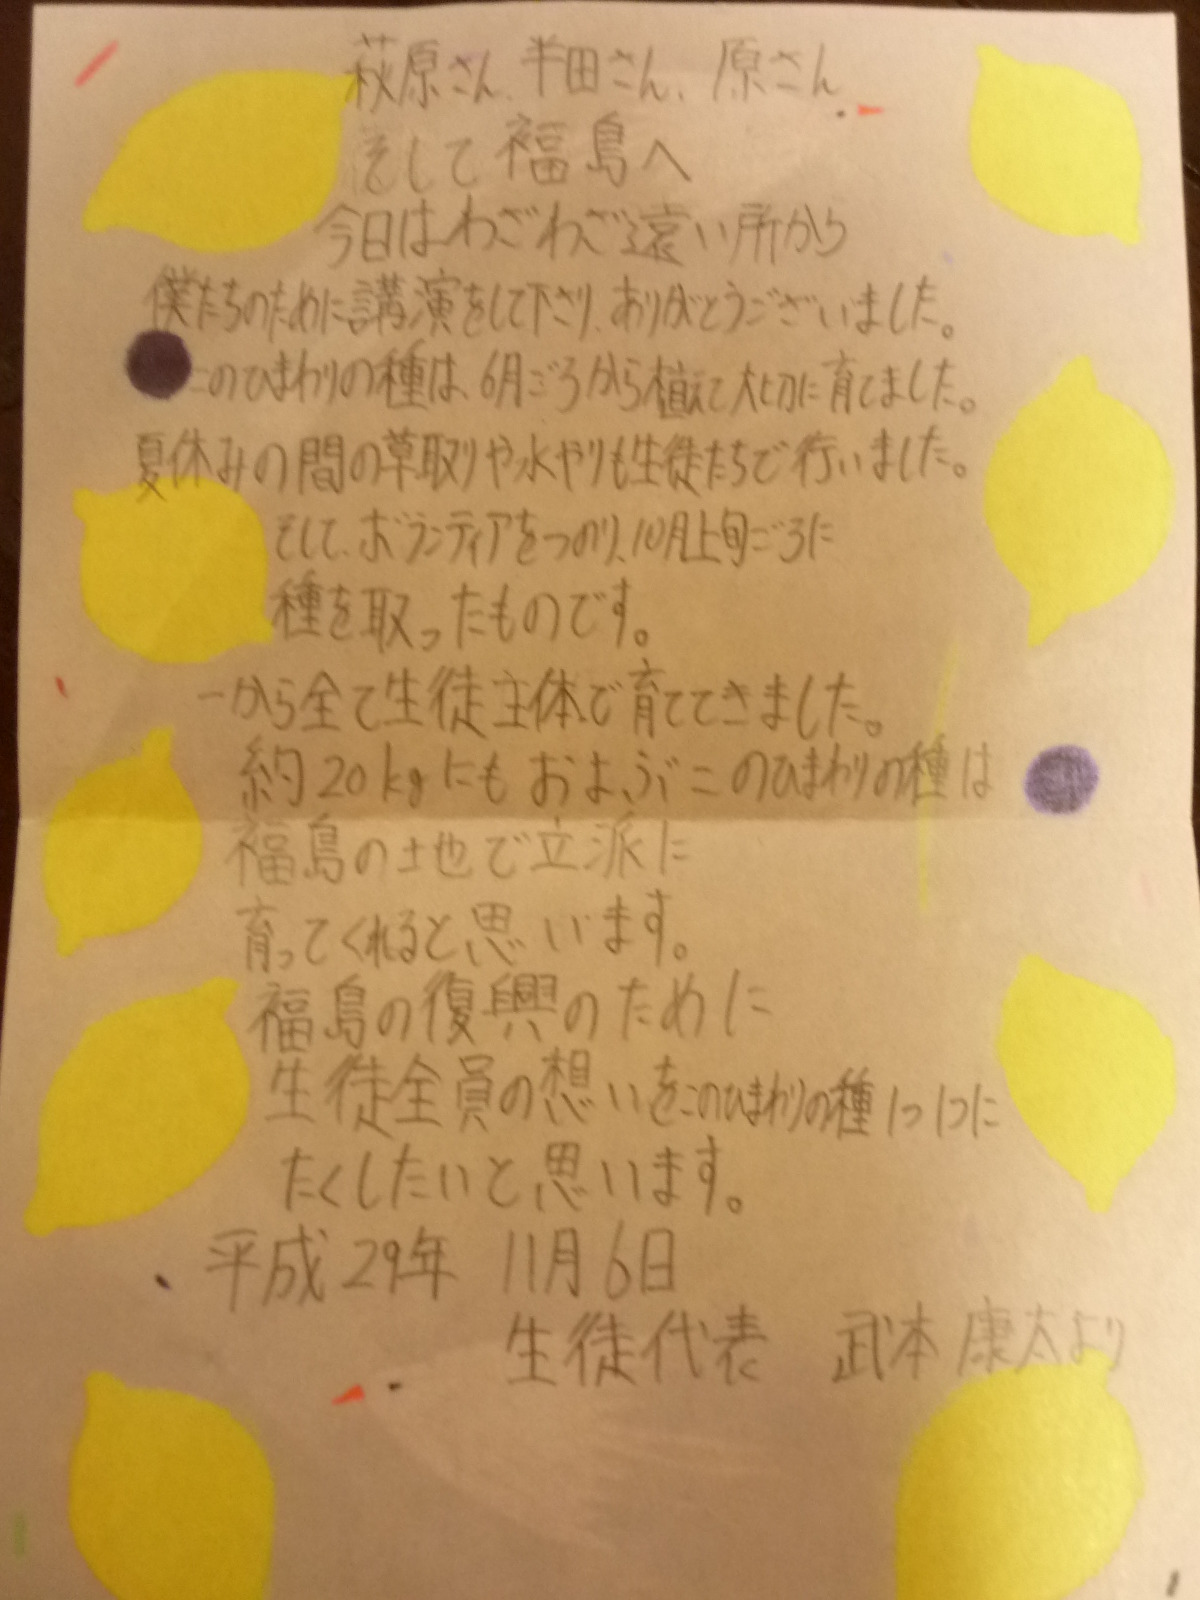 萩原さん、半田さん、原さん
そして福島へ
今日はわざわざ遠い所から
僕たちのために講演をして下さり、ありがとうございました。
このひまわりの種は、6月ごろから植えて大切に育てました。
夏休みの間の草取りや水やりも生徒たちで行いました。
そして、ボランティアをつのり、10月上旬ごろに
種を取ったものです。
一から全て生徒主体で育ててきました。
約20kgにもおよぶこのひまわりの種は
福島の土地で立派に
育ってくれると思います。
福島の復興のために
生徒全員の想いをこのひまわりの種1つ1つに
たくしたいと思います。
平成29年 11月6日
生徒代表 武本康太より